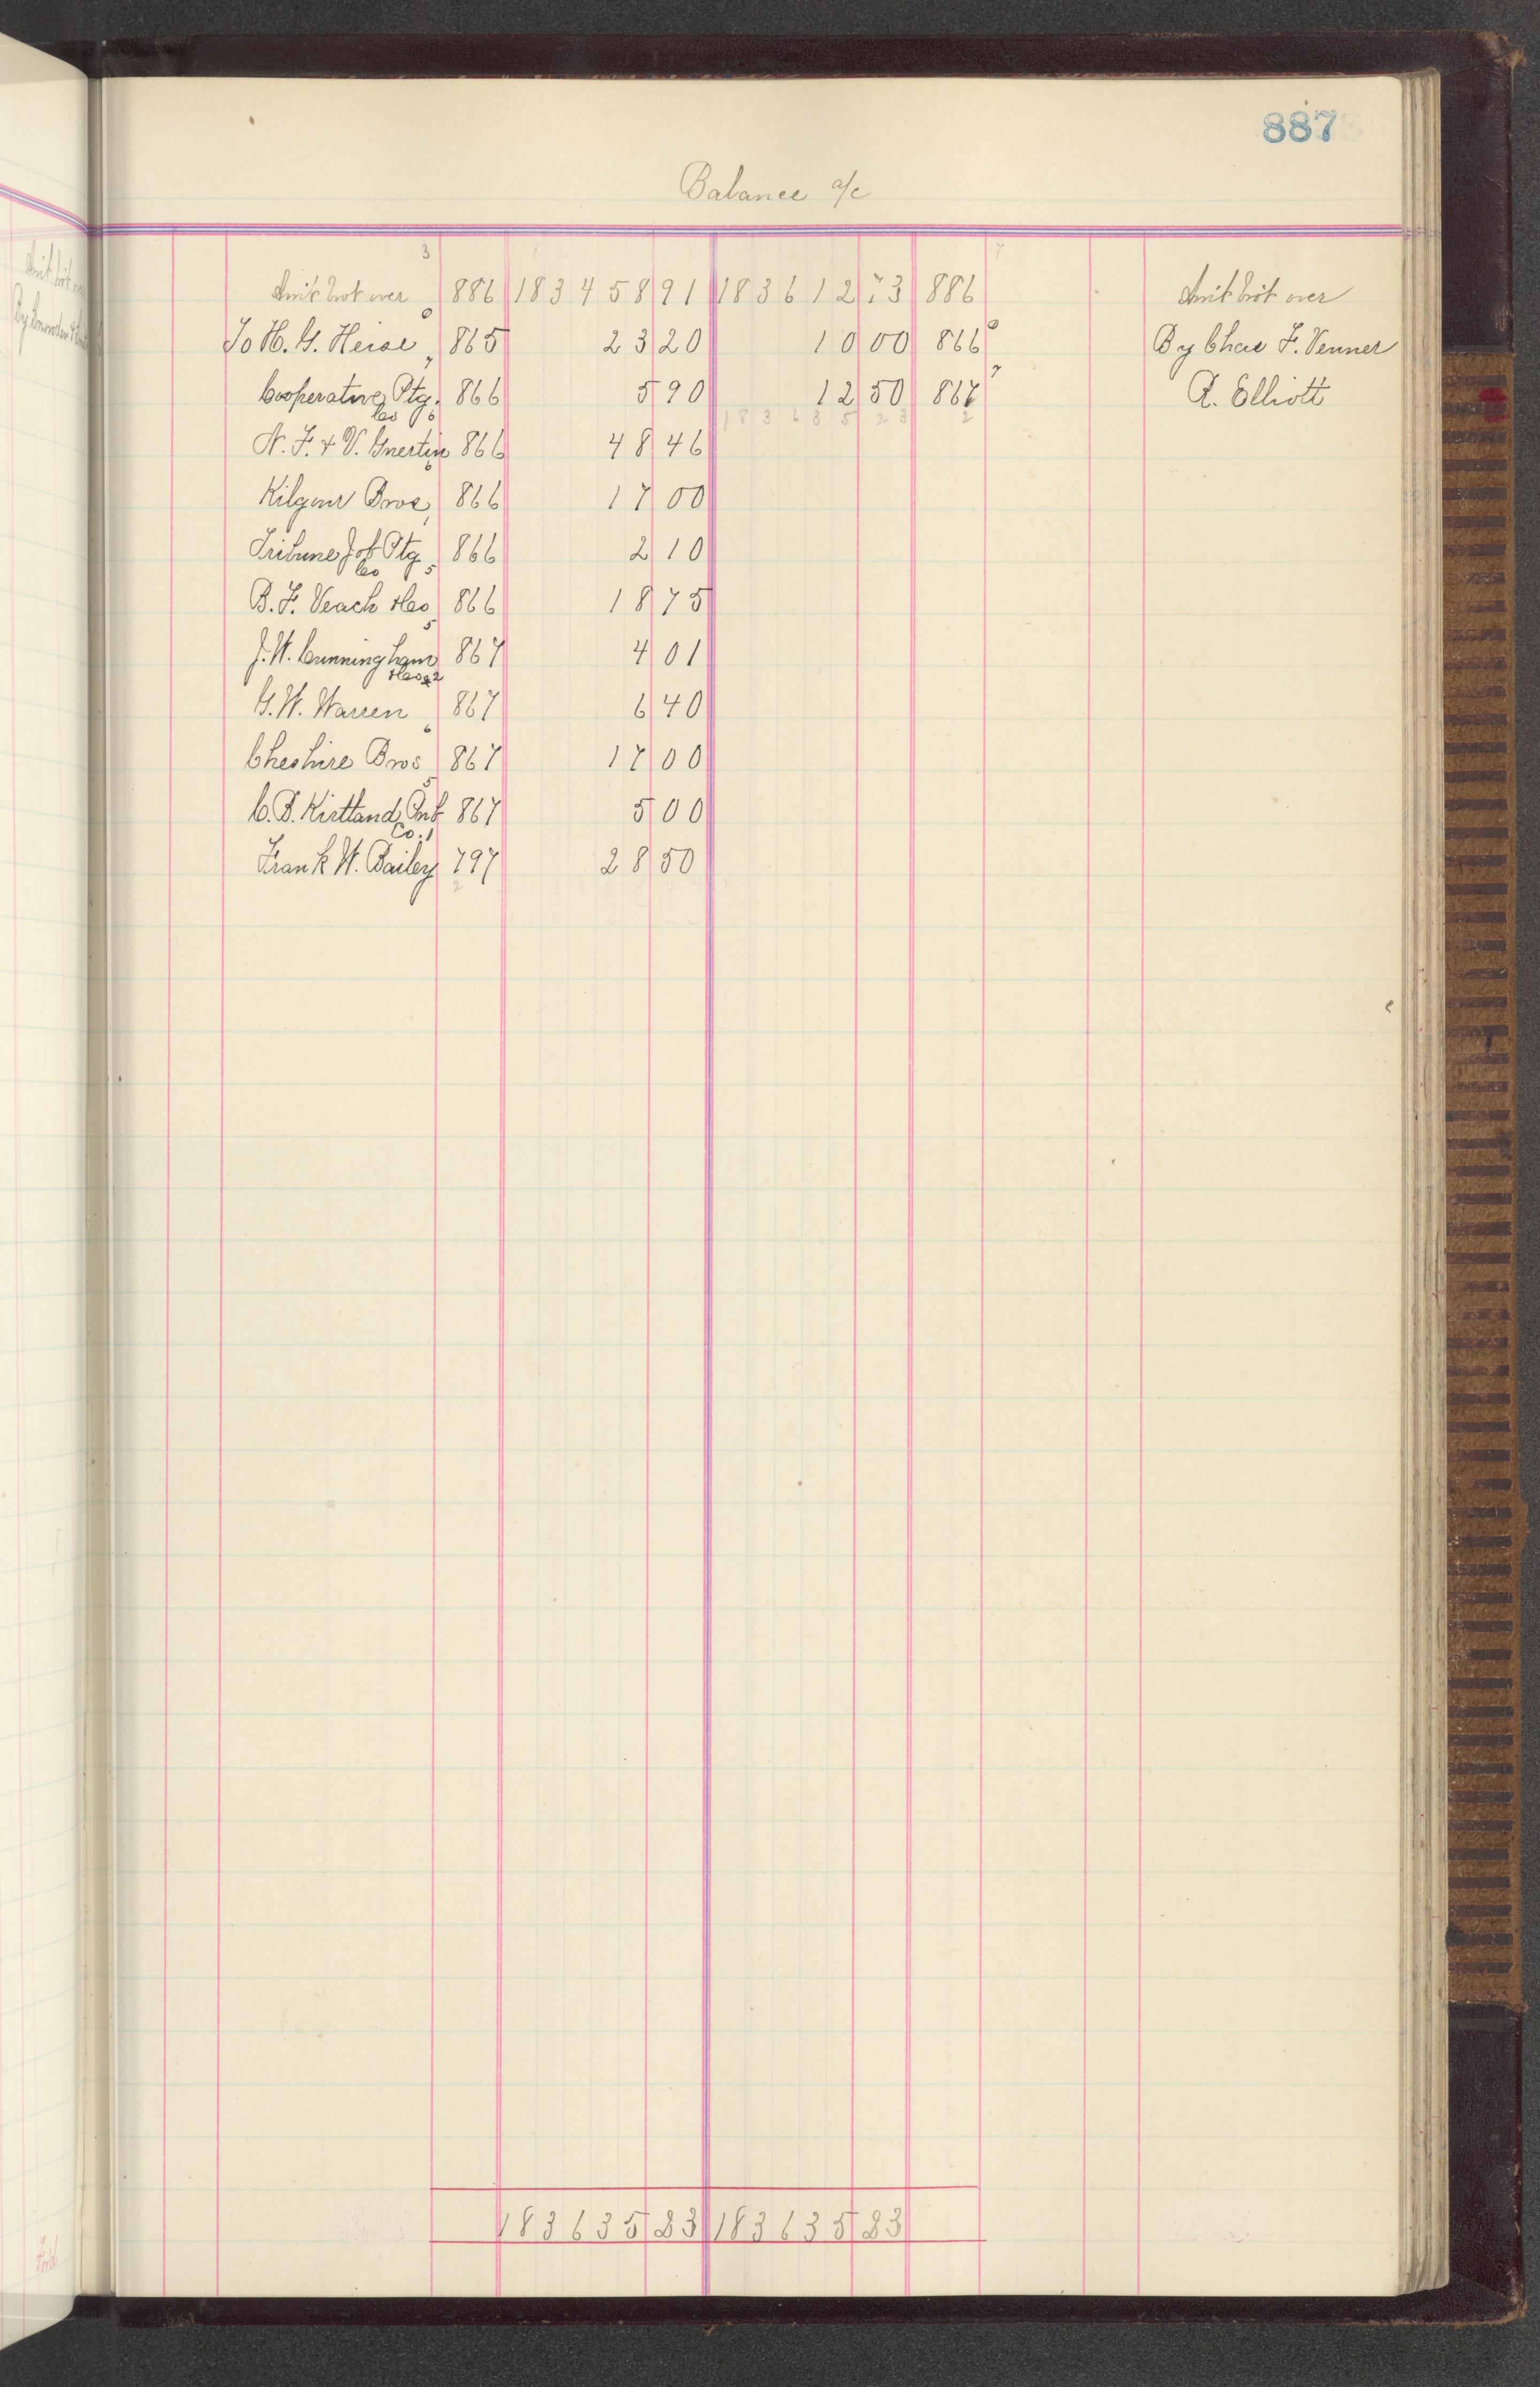 887
Balance a/c
Am't brot over 886 183458 91 183612 73 886 Am't brot over
To H. G. Heise 865 23 20 10 00 866 By Chas F. Venner
Cooperative Ptg. Co 866 5 90 12 50 867 A. Elliott
183635 23
N. F. & V. 866 48 46
Kilgour Bros 866 17 00
Tribune Job Ptg Co 866 2 10
B. F. Veach & Co 866 18 75
J. W. Cunningham & Co 867 4 01
G. W. Warren 867 6 40
Cheshire Bros 867 17 00
C. B. Kirtland Pub. Co. 867 5 00
Frank W. Bailey 797 28 50
183635 23 183635 23